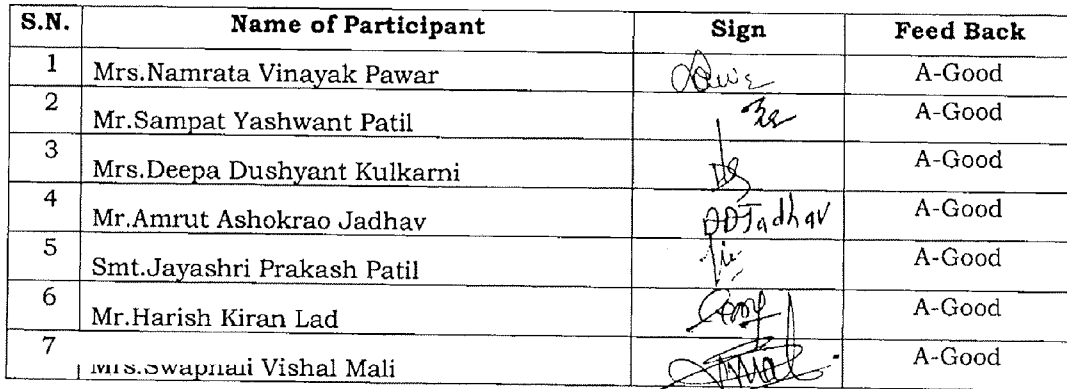 S.N. Name of Participant Sign Feed Back
1 Mrs.Namrata Vinayak Pawar A-Good
2 Mr.Sampat Yashwant Patil A-Good
3 Mrs.Deepa Dushyant Kulkarni A-Good
4 Mr.Amrut Ashokrao Jadhav Jadhav A-Good
5 Smt.Jayashri Prakash Patil A-Good
6 Mr.Harish Kiran Lad A-Good
7 Mrs.Swapnali Vishal Mali A-Good